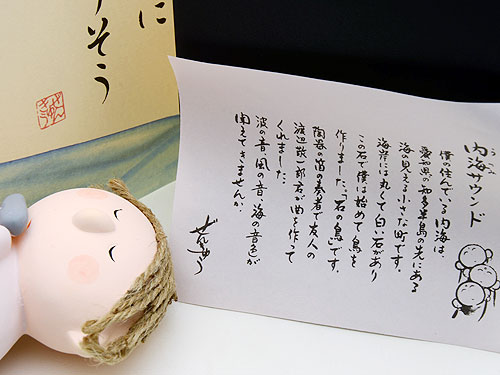 に
そう
内海サウンド
僕の住んでいる内海は
愛知県の知多半島の先にある
海の見える小さな町です。
海岸には丸くて白い石があり
この石で僕は始めて鳥を
作りました。「石の鳥」です。
陶器の笛の奏者で友人の
渡辺敬一郎君が曲を作って
くれました。
波の音、風の音、海の音色が
聞えてきませんか。
ぜんきゅう